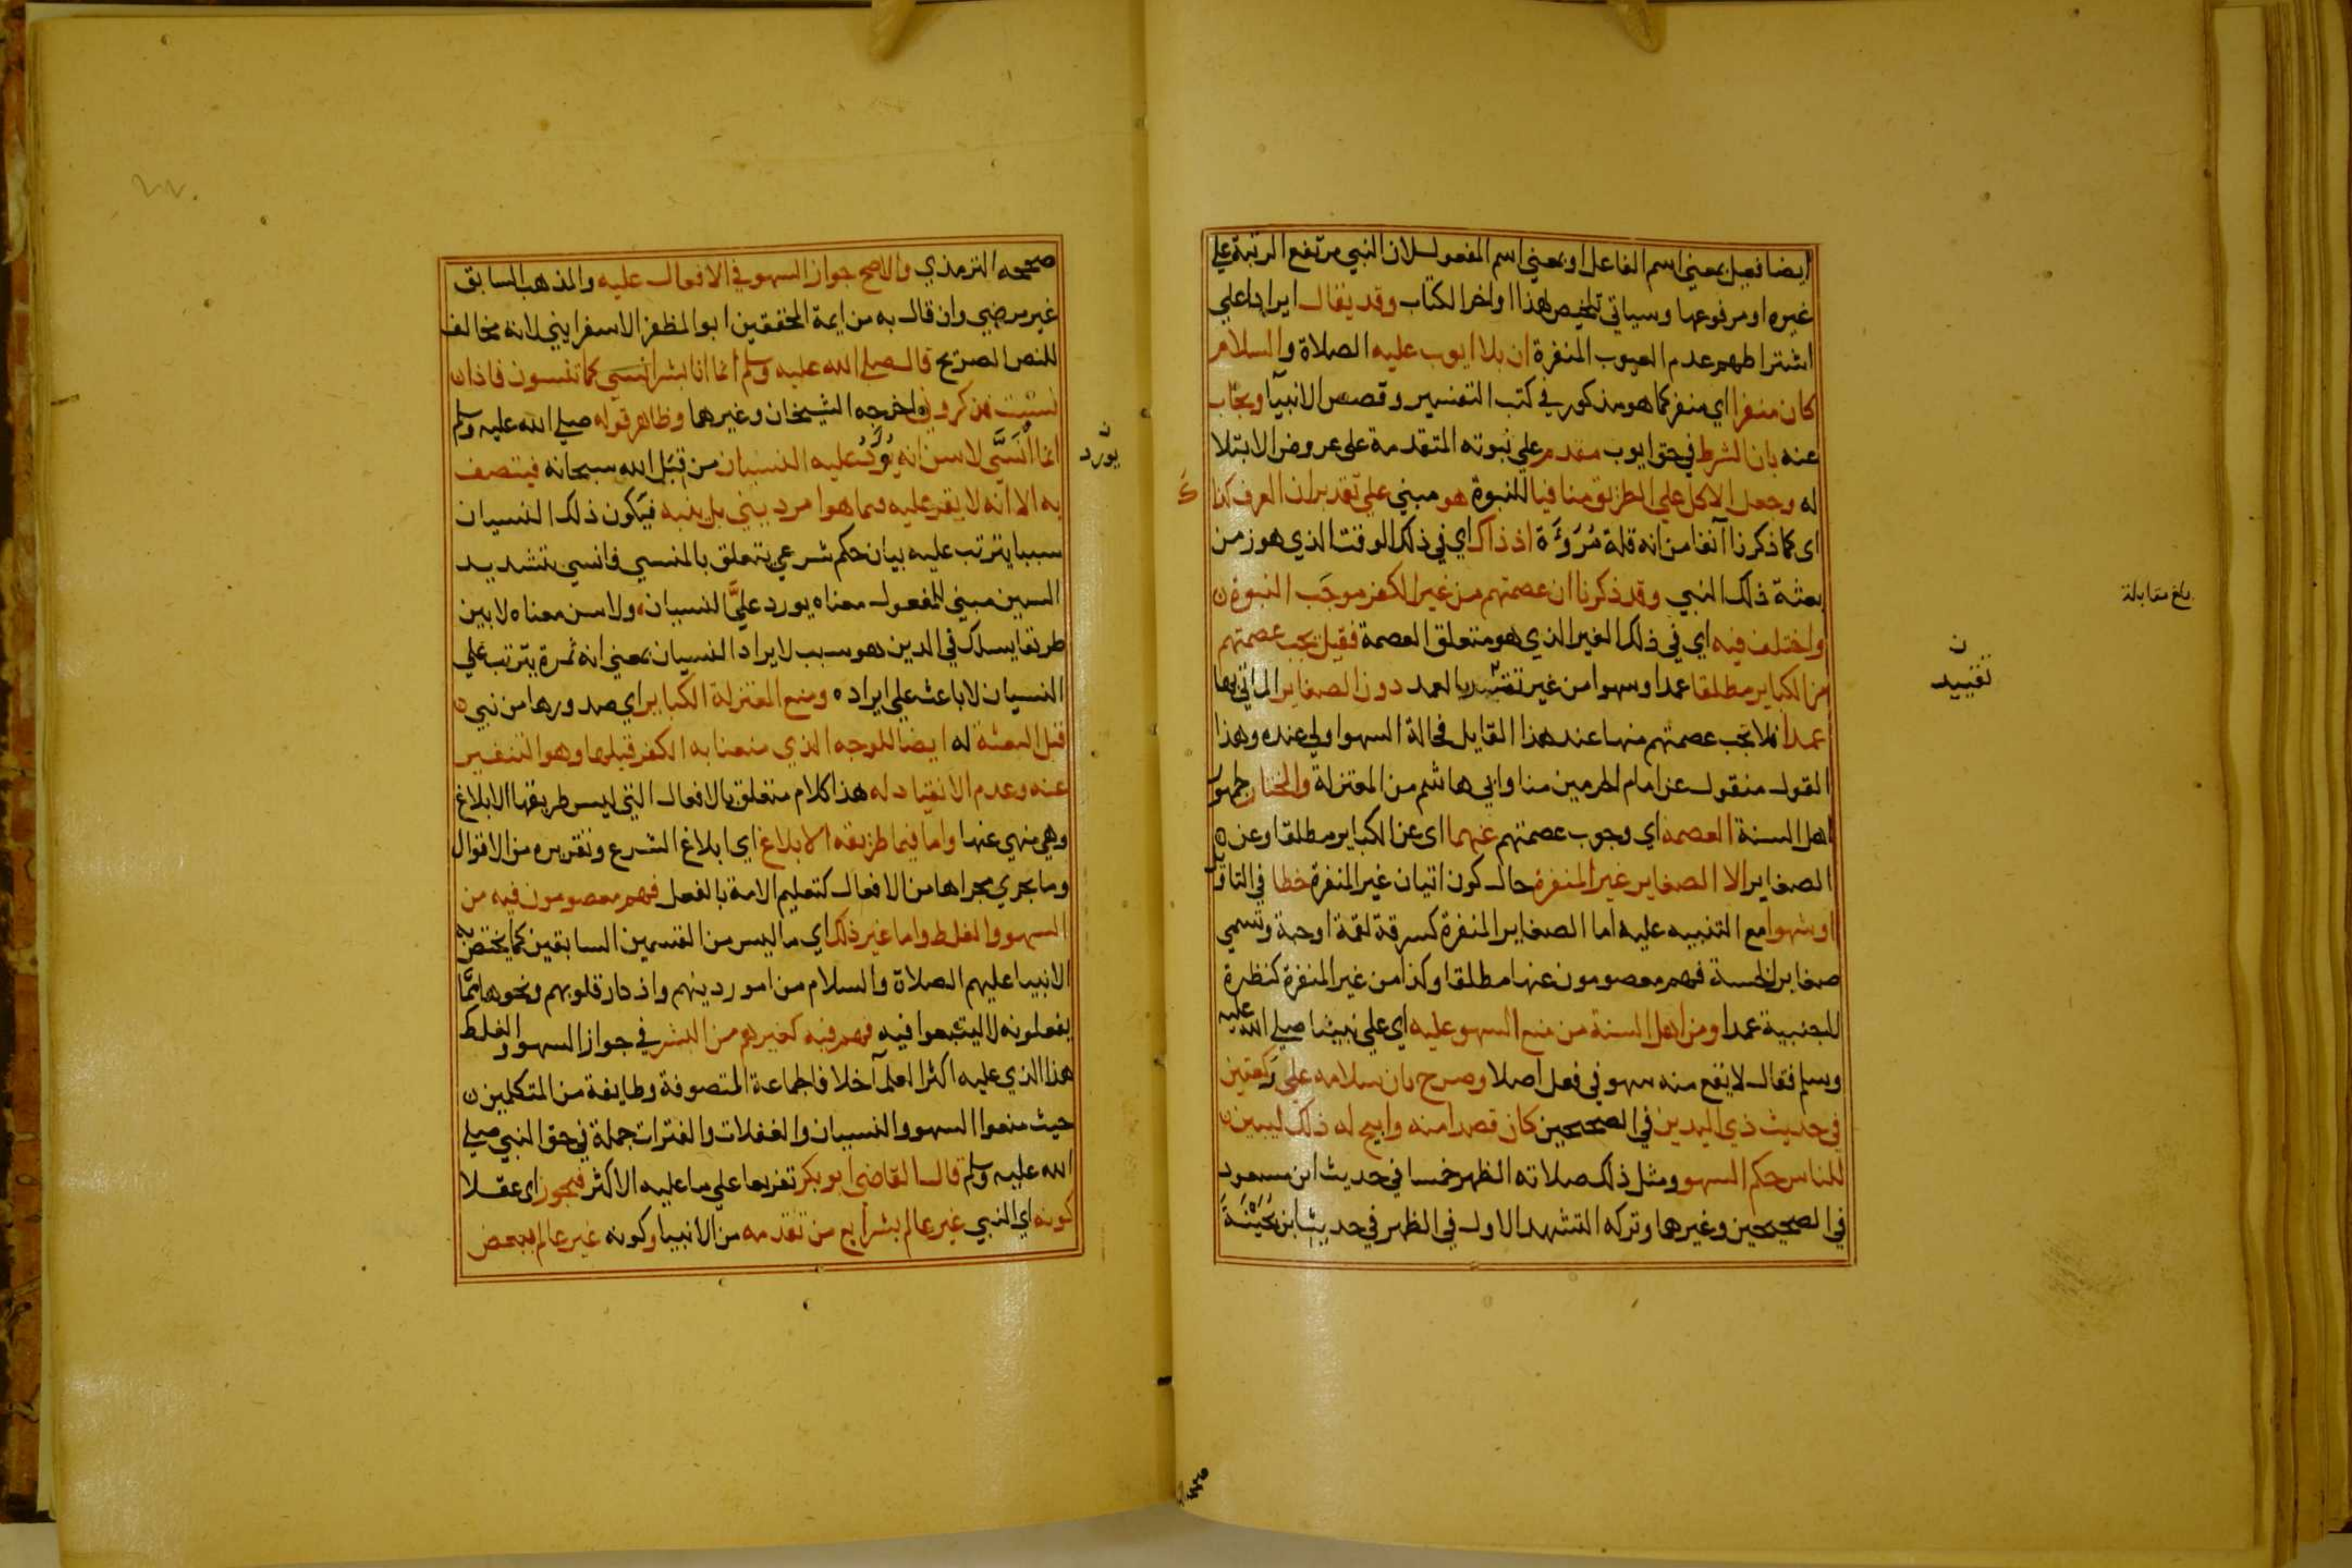 ايضا فعيل بمعني اسم الفاعل او بمعني اسم المفعول لان النبي مرتفع الرتبة علي
غيره او مرفوعها وسياتي تلخيص لهذا اواخر الكتاب وقد يقال ايرادا علي
اشتراطهم عدم العيوب المنفرة ان بلا ايوب عليه الصلاة والسلام
كان منفرا اي منفر كما هو مذكور في كتب التفسير وقصص الانبيآ ويجاب
عنه بان الشرط في حق ايوب مقدم علي نبوته المتقدمة علي عروض الابتلا
له وجعل الاكل علي الطريق منافيا للنبوة هو مبني علي تقدير ان العرف كذا
اى كما ذكرنا آنفا من انه قلة مُرُوَءَة اذ ذاك اي في ذلك الوقت الذي هو زمن
بعثة ذلك النبي وقد ذكرنا ان عصمتهم من غير الكفر موجَب النبوة ن
واختلف فيه اي في ذلك الغير الذي هو متعلق العصمة فقيل يجب عصمتهم
من الكباير مطلقا عمدا وسهوا من غير تقييد بالعمد دون الصغاير الماتي بها
عمدا فلا تجب عصمتهم منها عند هذا القايل فحالة السهو اولي عنده وهذا
القول منقول عن امام الحرمين منا وابي هاشم من المعتزلة والمختار جمهور
اهل السنة العصمة اي وجوب عصمتهم عنهما اى عن الكباير مطلقا وعن ن
الصغاير الا الصغاير غير المنفرة حال كون اتيان غير المنفرة خطا في التاول
او سهوا مع التنبيه عليه اما الصغاير المنفرة كسرقة لقمة او حبة وتسمي
صغاير الخسة فهم معصومون عنها مطلقا وكذا من غير المنفرة كنظرة
للجنبية عمدا ومن اهل السنة من منع السهو عليه اى علي نبينا صلي الله عليه
وسلم فقال لا يقع منه سهو في فعل اصلا وصرح بان سلامه علي ركعتين
في حديث ذي اليدين في الصحيحين كان قصدا منه وابيح له ذلك ليبين ن
للناس حكم السهو ومثل ذلك صلاته الظهر خمسا في حديث ابن مسعود
في الصحيحين وغيرها وتركه التشهد الاول في الظهر في حديث ابن بُحَيْنَةَ
ن
تقييد
بلغ مقابلة
صححه الترمذي والاصح جواز السهو في الافعال عليه والمذهب السابق
غير مرضي وان قال به من ايمة المحققين ابو المظفر الاسفرايني لانه مخالف
للنص الصريح قال صلي الله عليه وسلم انما انا بشر انسي كما تنسون فاذا ن
نسيت فذكروني اخرجه الشيخان وغيرهما وظاهر قوله صلي الله عليه وسلم
انما اُنَسَّي لاسن انه يُورَدُ عليه النسيان من قِبَل الله سبحانه فيتصف
به الا انه لا يقر عليه فيما هو امر ديني بل ينبه فيكون ذلك النسيان
سببا يترتب عليه بيان حكم شرعي يتعلق بالمنسي فانسي بتشديد
السين مبني للمفعول معناه يورد عليَّ النسيان ولاسن معناه لابين
طريقا يسلك في الدين هو سبب لايراد النسيان بمعني انه ثمرة يترتب علي
النسيان لا باعث علي ايراده ومنع المعتزلة الكباير اي صدورها من نبي ن
قبل البعثة له ايضا للوجه الذي منعنا به الكفر قبلها وهو التنفير
عنه وعدم الانقياد له هذا كلام متعلق بالافعال التي ليس طريقها الابلاغ
وهي منهي عنها واما فيما طريقه الابلاغ اي ابلاغ الشرع وتقريره من الاقوال
وما يجري مجراها من الافعال كتعليم الامة بالفعل فهم معصومون فيه من
السهو والغلط واما غير ذلك اي ما ليس من القسمين السابقين كما يختص به
الانبيا عليهم الصلاة والسلام من امور دينهم واذكار قلوبهم ونحوها ممَّا
يفعلونه لا ليتبعوا فيه فهم فيه كغيرهم من البشر في جواز السهو والغلط
هذا الذي عليه اكثر العلمآ خلافا لجماعة المتصوفة وطايفة من المتكلمين ن
حيث منعوا السهو والنسيان والغفلات والفترات جملة في حق النبي صلي
الله عليه وسلم قال القاضي ابو بكر تفريعا علي ما عليه الاكثر فيجوز اى عقلا
كونه اي النبي غير عالم بشرايع من تقدمه من الانبيا وكونه غير عالم ببعض
ن
يورد